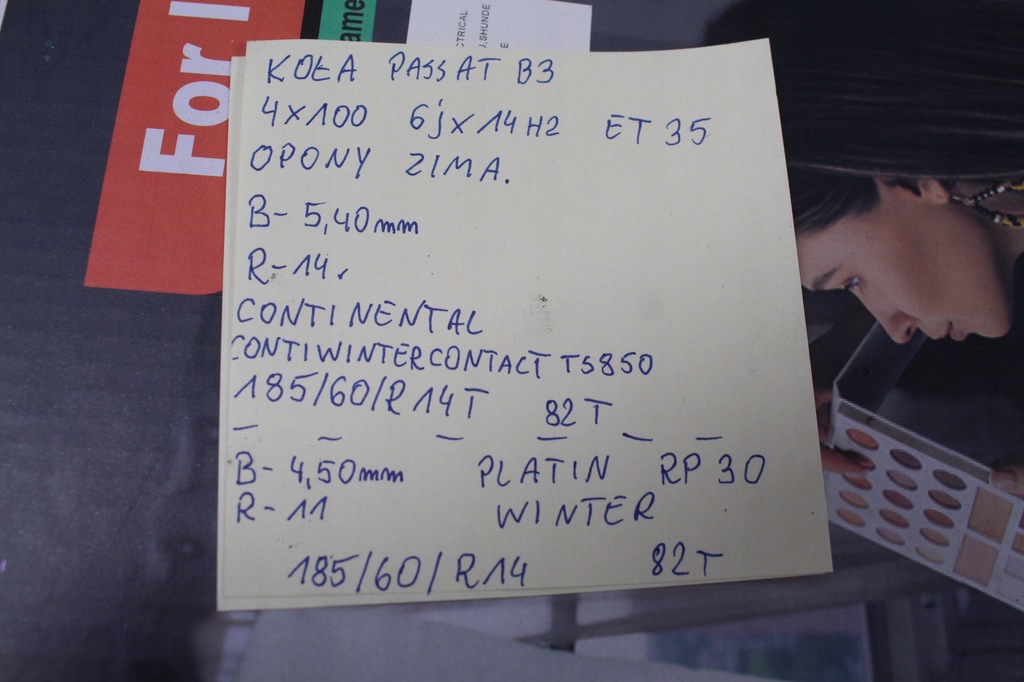 For I
ame
TRICAL
U,SHUNDE
E
KOŁA PASSAT B3
4x100 6jx14H2 ET 35
OPONY ZIMA.
B- 5,40mm
R-14.
CONTINENTAL
CONTIWINTERCONTACT TS850
185/60/R14T 82T
B- 4,50mm PLATIN RP 30
R- 11 WINTER
185/60/R14 82T